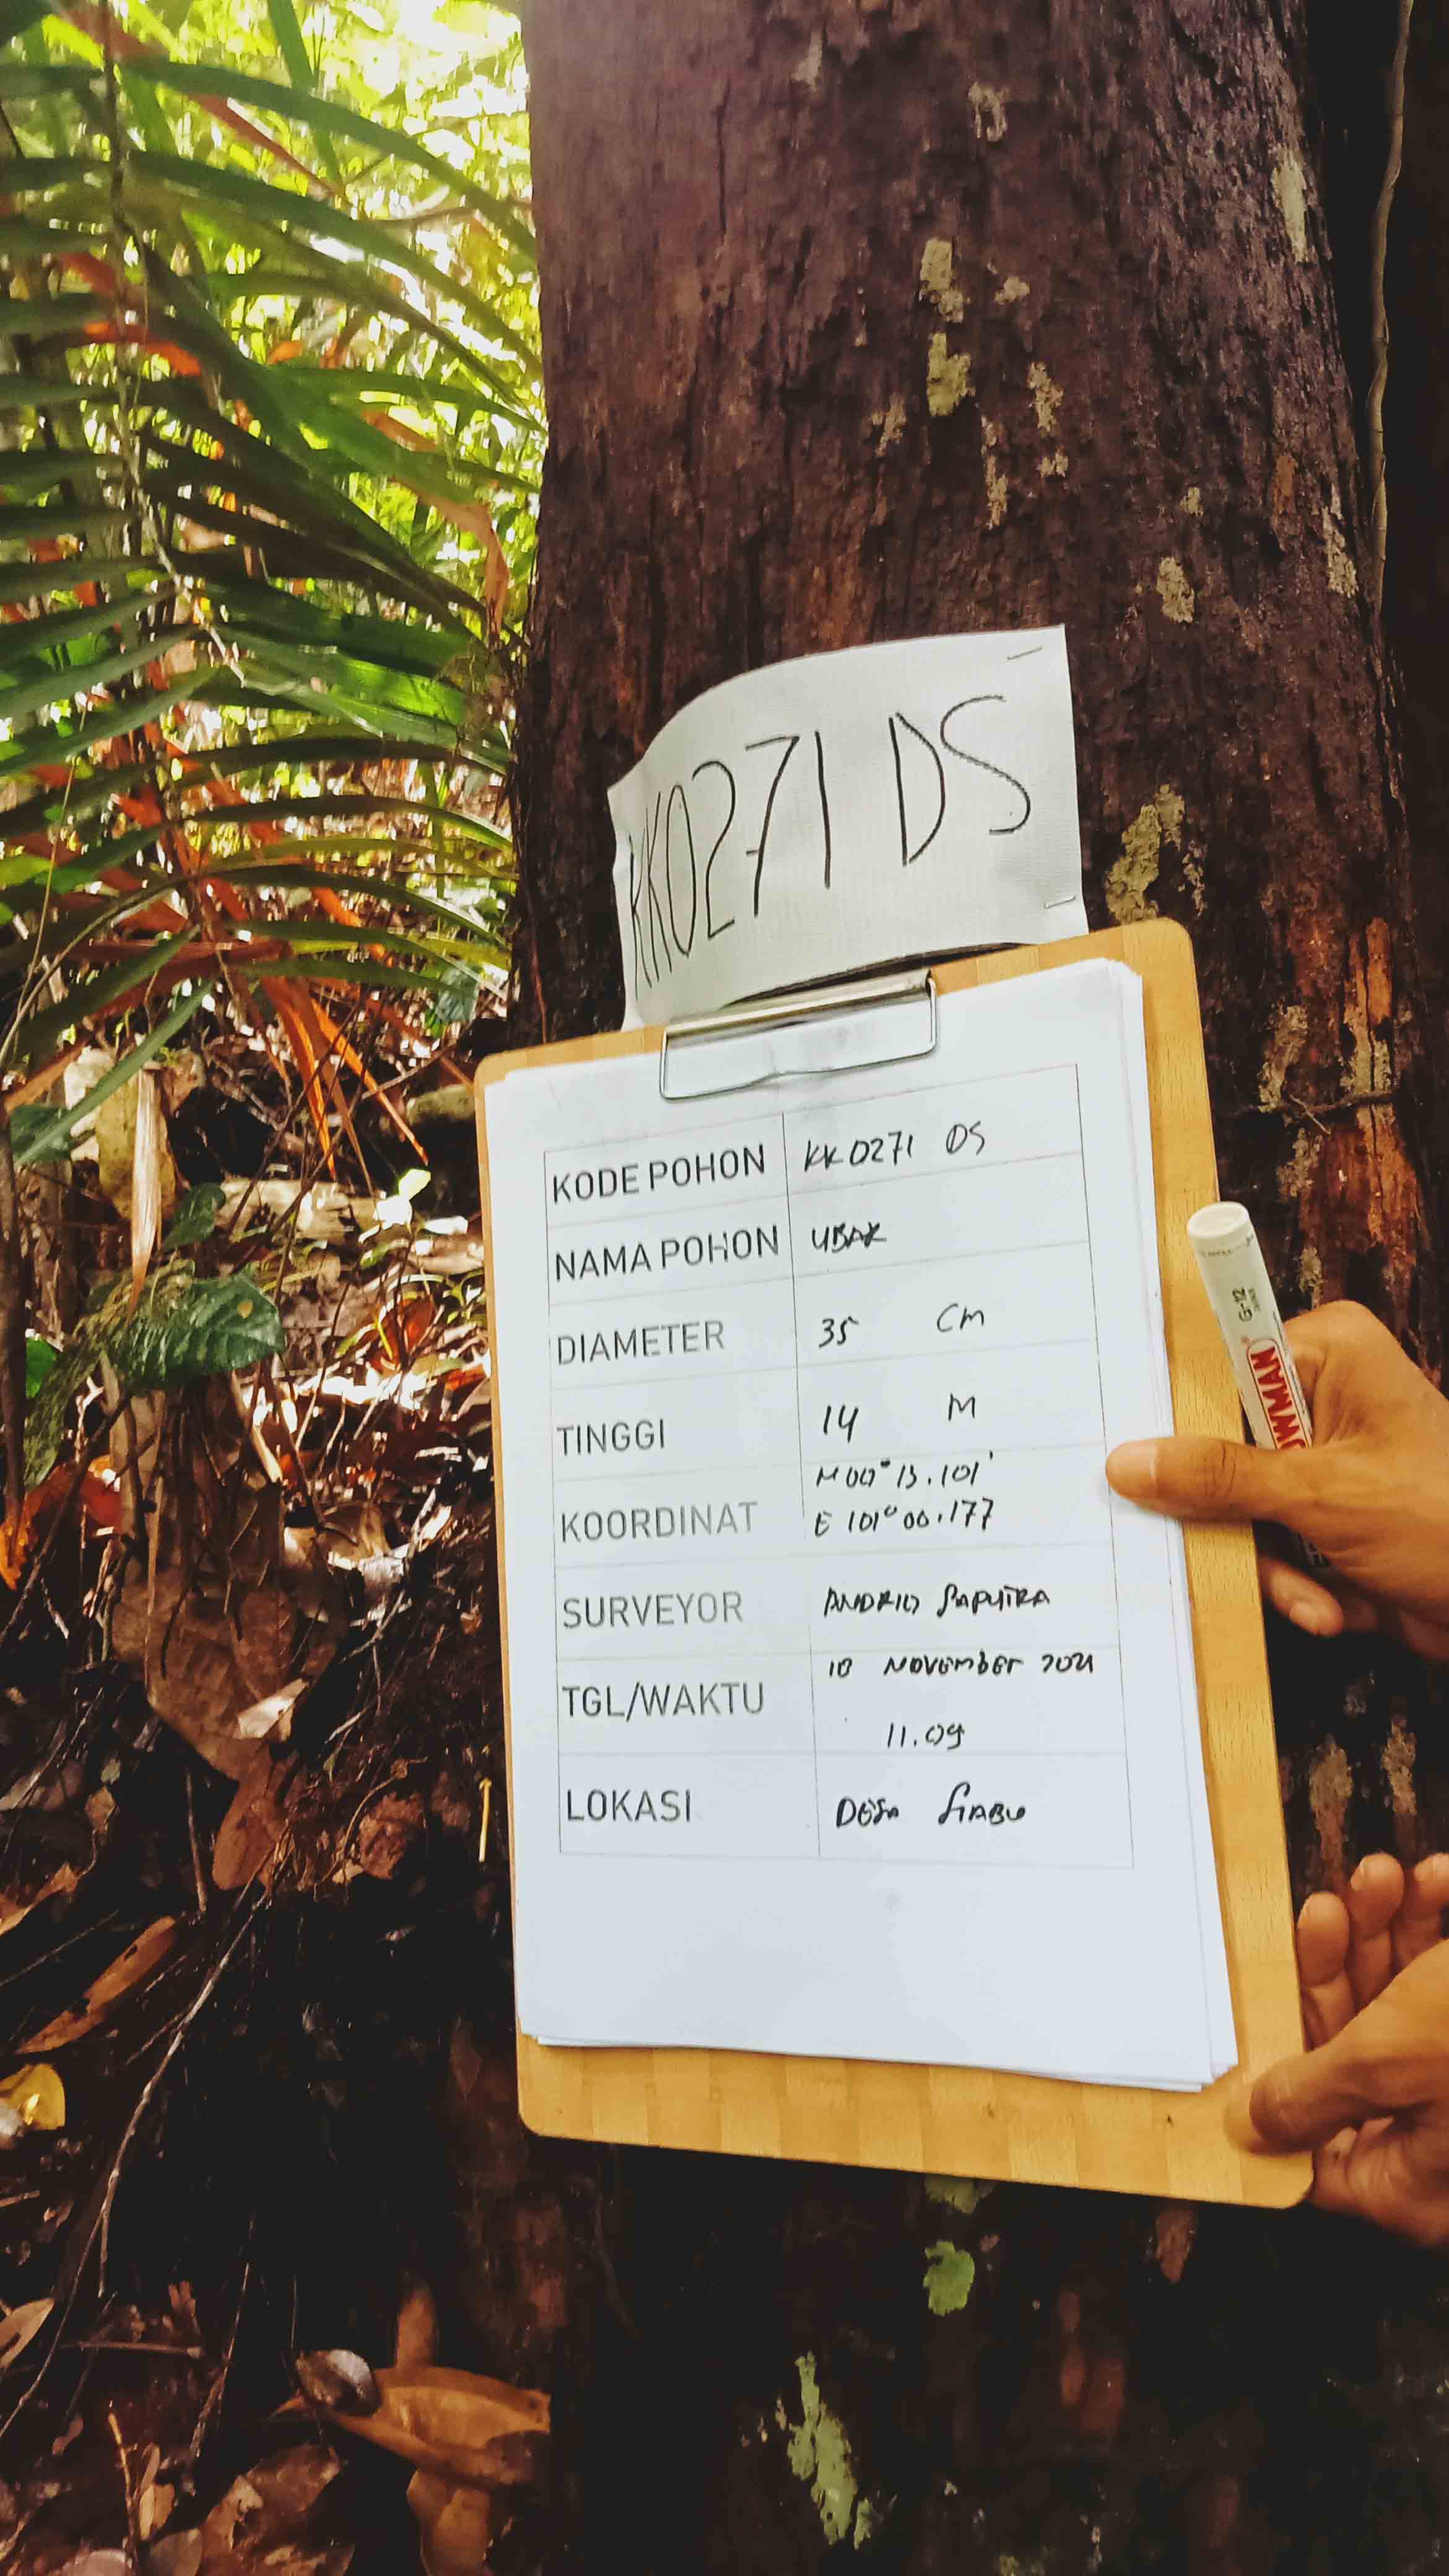 KK0271 DS
KODE POHON KK0271 DS
NAMA POHON UBAR
DIAMETER 35 CM
TINGGI 14 M
KOORDINAT N 00° 13.101'
E 101° 00.177
SURVEYOR SAPUTRA
TGL/WAKTU 10 NOVEMBER 2021
11.09
LOKASI DESA SIABU
G-12